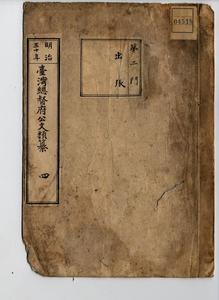 04518
第二門
出張
明治
三十年
臺灣總督府公文類纂
四